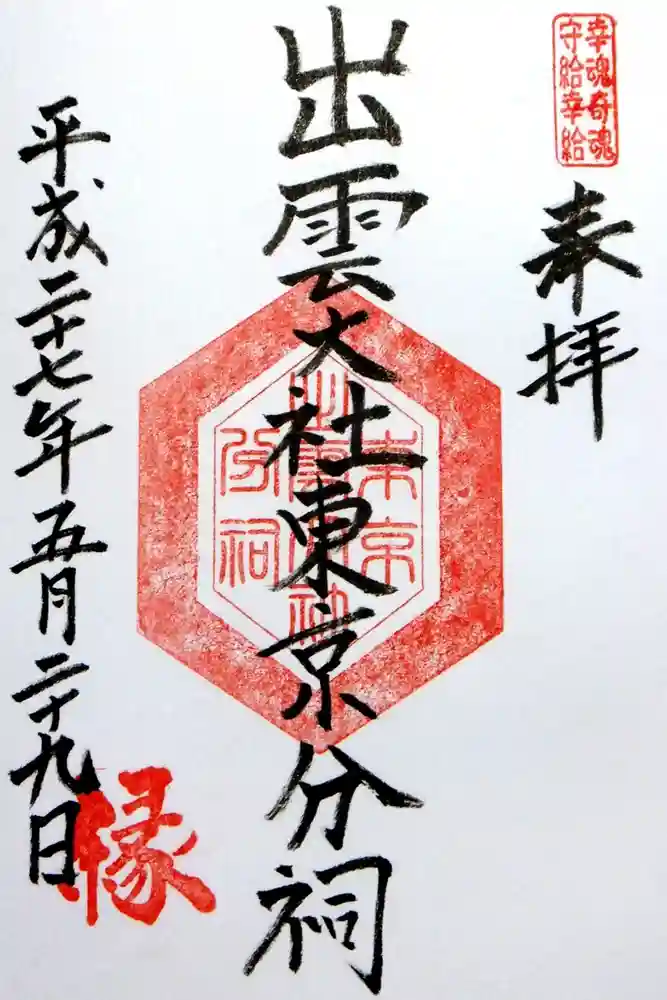 幸魂奇魂
守給幸給
奉拝
出雲大社東京分祠
東京
出雲大社
分祠
平成二十七年五月二十九日
縁